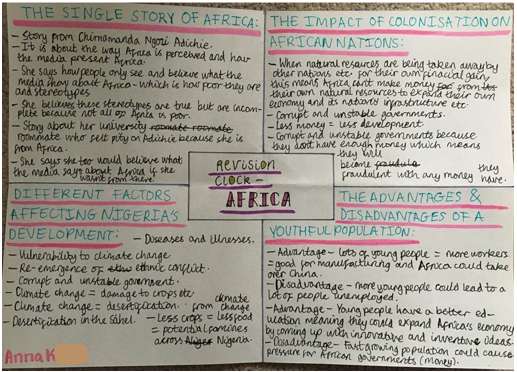 THE SINGLE STORY OF AFRICA:
- Story from Chimamanda Ngozi Adichie.
- It is about the way Africa is perceived and how
the media present Africa.
- She says how people only see and believe what the
media show about Africa - which is how poor they are
and stereotypes.
- She believes these stereotypes are true but are incom-
plete because not all of Africa is poor.
- Story about her university roomate roomate
roommate who felt pity on Adichie because she is
from Africa.
- She says she too would believe what
the media says about Africa if she
wasn't from there.
THE IMPACT OF COLONISATION ON
AFRICAN NATIONS:
- When natural resources are being taken away by
other nations etc for their own finacial gain,
this means Africa can't make money for from its
their own natural resources to expand their own
economy and its nations infrastructure etc
- Corrupt and unstable governments.
- Less money = less development
- Corrupt and unstable governments because
they don't have enough money which means
they will
become
fraudulent with any money they
have.
REVISION
CLOCK -
AFRICA
DIFFERENT FACTORS
AFFECTING NIGERIA'S
DEVELOPMENT:
- Diseases and Illnesses.
- Vulnerability to climate change
- Re-emergence of ethnic conflict.
- Corrupt and unstable government.
- Climate change = damage to crops etc
- Climate change = desertification from climate change
- Desertification in the Sahel.
- Less crops = less food
= potential famines
across Niger Nigeria.
Anna K
THE ADVANTAGES &
DISADVANTAGES OF A
YOUTHFUL POPULATION:
- Advantage - lots of young people = more workers
= good for manufacturing and Africa could take
over China.
- Disadvantage - more young people could lead to a
lot of people unemployed.
- Advantage - Young people have a better ed-
ucation meaning they could expand Africa's economy
by coming up with innovative and inventive ideas.
- Disadvantage - Fast growing population could cause
pressure for African governments (money).